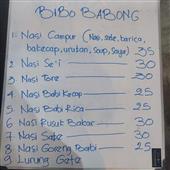 BIBO BABONG
1. Nasi Campur (Nasi, sate, barica,
babikecap, urutan, soup, sayur) 35
2 Nasi Se'i — 30
3 Nasi Tore — 30
4 Nasi Babi Kecap — 25
5 Nasi Babi Rica — 25
6 Nasi Rusuk Bakar — 30
7 Nasi Sate — 30
8 Nasi Goreng Babi — 25
9 Lurung Gete